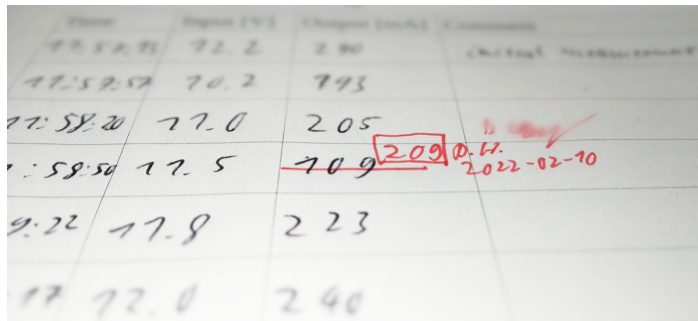 Time Input (V) Output (mA) Comment
12.2 240 initial measurement
11:57:57 10.2 193
11:58:20 11.0 205
:58:50 11.5 109 209 D.H.
2022-02-10
9:22 11.8 223
17 12.0 240